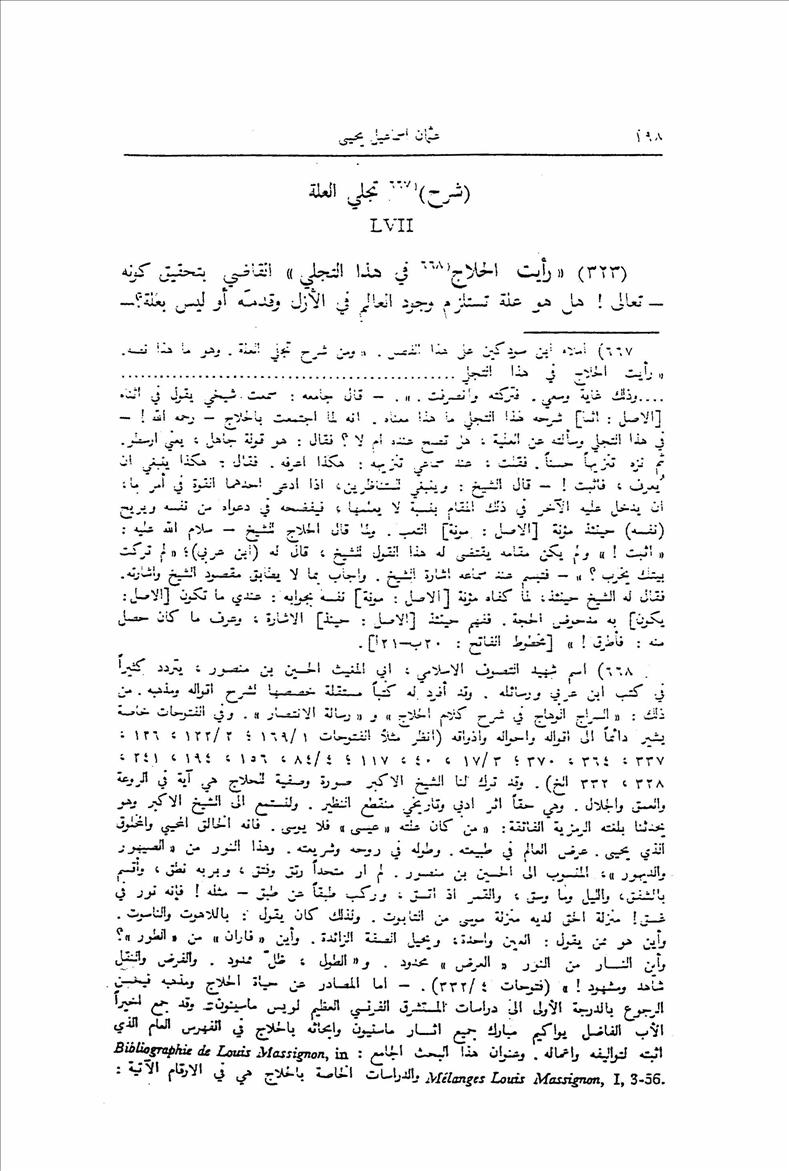 ١٩٨ عثمان اسماعيل يحيى
(شرح)٦٦٧) تجلي العلة
LVII
(٣٢٣) « رأيت الحلاج٦٦٨) في هذا التجلي » القاضي بتحقيق كونه
ـ تعالى ! هل هو علة تستلزم وجود العالم في الأزل وقدمه أو ليس بعلة؟ـ
٦٦٧) املاء ابن سودكين على هذا الفصل . « ومن شرح تجلي العلة . وهو ما هذا نصه.
« رأيت الحلاج في هذا التجلي ..................................................
....وذلك غاية وسعي . فتركته وانصرفت . » . ـ قال جامعه : سمعت شيخي يقول في اثناء
[الاصل : اثنا] شرحه لهذا التجلي ما هذا معناه . انه لما اجتمعت بالحلاج ـ رحمه الله ! ـ
في هذا التجلي وسألته عن العلية ، هل تصح عنده ام لا ؟ فقال : هو قولة جاهل ، يعني ارسطو.
ثم نزه تنزيهاً حسناً . فقلت ، عند سماعي تنزيهه : هكذا اعرفه . فقال : هكذا ينبغي ان
يُعرف ، فاثبت ! ـ قال الشيخ : وينبغي للمتناظرين، اذا ادعى احدهما القوة في أمر ما،
ان يدخل عليه الآخر في ذلك المقام بنسبة لا يعلمها ، فيفضحه في دعواه من نفسه ويريح
(نفسه) حينئذ مؤنة [الاصل : مونة] التعب . ولما قال الحلاج للشيخ ـ سلام الله عليه :
« اثبت ! » ولم يكن مقامه يقتضي له هذا القول للشيخ ، قال له (ابن عربي)؛ « لم تركت
بيتك يخرب ؟ » ـ فتبسم عند سماعه اشارة الشيخ . واجاب بما لا يطابق مقصود الشيخ واشارته.
فقال له الشيخ حينئذ، لما كفاه مؤنة [الاصل : مونة] نفسه بجوابه : عندي ما تكون [الاصل:
يكون] به مدحوض الحجة . ففهم حينئذ [الاصل : حينذ] الاشارة ، وعرف ما كان حصل
منه : فأطرق ! » [مخطوط الفاتح : ٢٠ب–٢١أ].
٦٦٨) اسم شهيد التصوف الاسلامي ، ابي المغيث الحسين بن منصور ، يتردد كثيراً
في كتب ابن عربي ورسائله . وقد أفرد له كتباً مستقلة خصصها لشرح اقواله ومذهبه . من
ذلك : « السراج الوهاج في شرح كلام الحلاج » و « رسالة الانتصار » . وفي الفتوحات خاصة
يشير دائماً الى اقواله واحواله واذواقه (انظر مثلاً الفتوحات ١٦٩/١ ؛ ١٢٢/٢ ، ١٢٦ ،
٣٣٧ ، ٣٦٤ ، ٣٧٠ ؛ ١٧/٣ ، ٤٠ ، ١١٧ ؛ ٨٤/٤ ، ١٥٦ ، ١٩٤ ، ٢٤١ ،
٣٢٨ ، ٣٣٢ الخ) . وقد ترك لنا الشيخ الاكبر صورة وصفية للحلاج هي آية في الروعة
والعمق والجلال . وهي حقاً اثر ادبي وتاريخي منقطع النظير . ولنستمع الى الشيخ الاكبر وهو
يحدثنا بلغته الرمزية الفائقة: « من كان علته «عيسى» فلا يوسى . فانه الخالق المحيي والمخلوق
الذي يحيى . عرض العالم في طبيعته . وطوله في روحه وشريعته . وهذا النور من «الصيهور
والديهور»، المنسوب الى الحسين بن منصور . لم ار متحداً رتق وفتق ، وبربه نطق ، وأقسم
بالشفق، والليل وما وسق ، والقمر اذ اتسق ، وركب طبقاً عن طبق ـ مثله ! فإنه نور في
غسق! منزلة الحق لديه منزلة موسى من التابوت . ولذلك كان يقول : باللاهوت والناسوت .
وأين هو ممن يقول : العين واحدة، ويحيل الصفة الزائدة . وأين « فاران » من « الطور »؟
وأين النار من النور « العرض » محدود . و « الطول ، ظلّ ممدود . والفرض والنفل
شاهد ومشهود ! » (فتوحات ٣٣٢/٤) . ـ اما المصادر عن حياة الحلاج ومذهبه فيحسن
الرجوع بالدرجة الأولى الى دراسات المستشرق الفرنسي العظيم لويس ماسينون. وقد جمع اخيراً
الأب الفاضل يواكيم مبارك جميع اثار ماسنيون وابحاثه بالحلاج في الفهرس العام الذي
اثبته لتواليفه واعماله . وعنوان هذا البحث الجامع : Bibliographie de Louis Massignon, in
Mélanges Louis Massignon, I, 3-56. والدراسات الخاصة بالحلاج هي في الارقام الآتية :